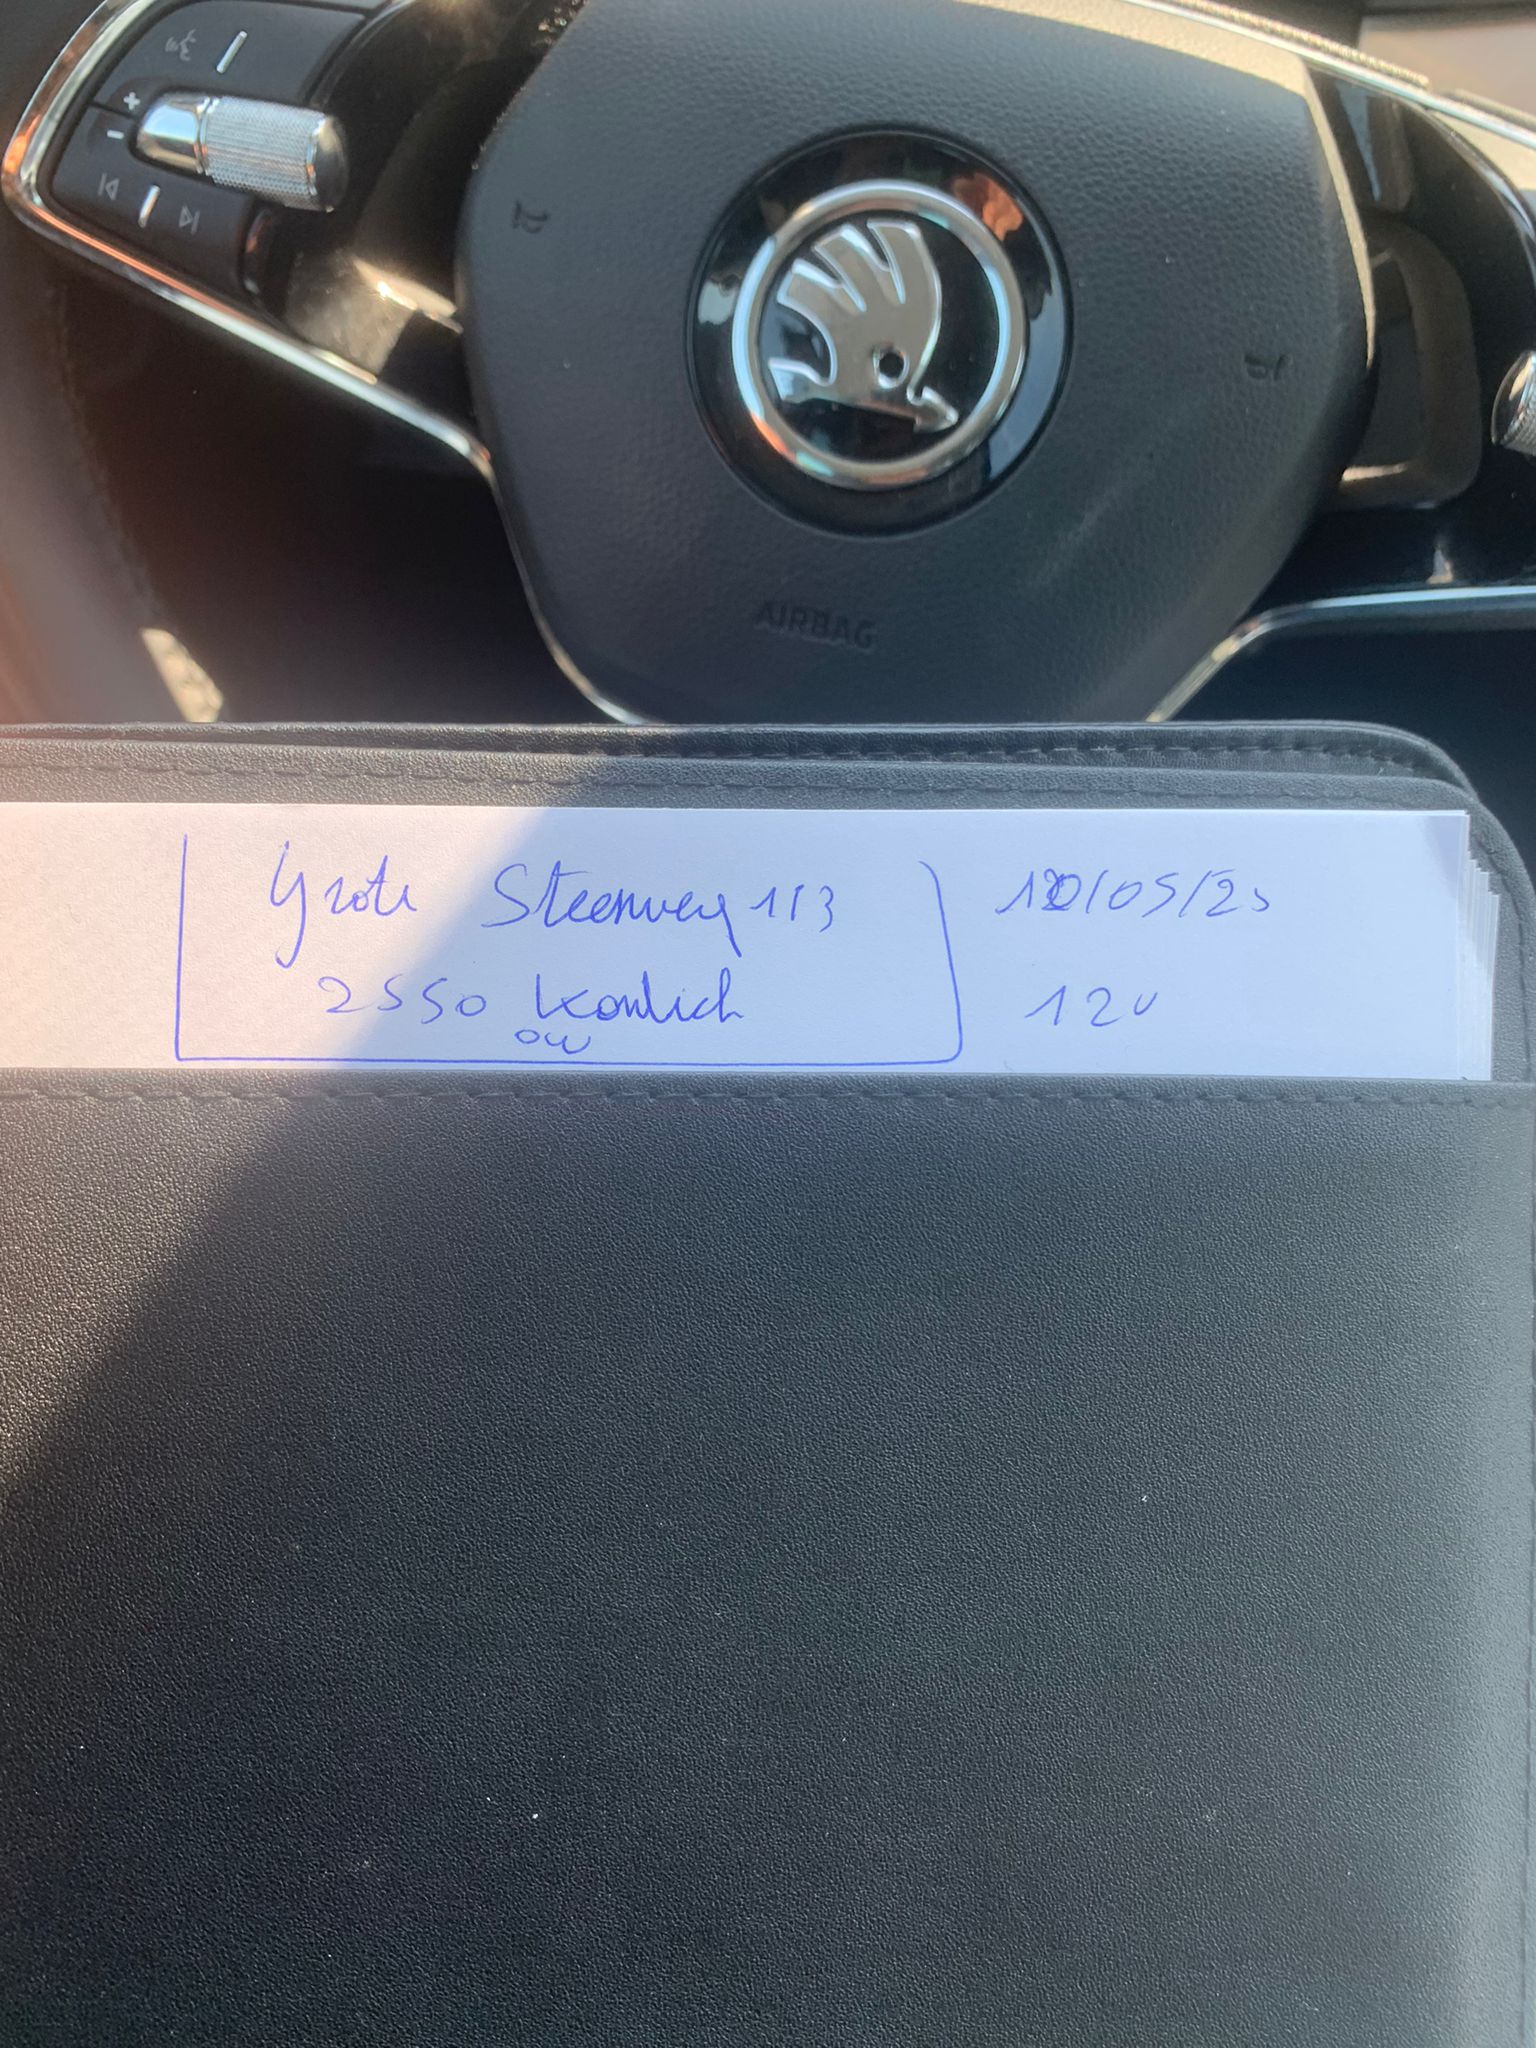 AIRBAG
Grote Steenweg 113
2550 Kontich
ow
/05/25
120